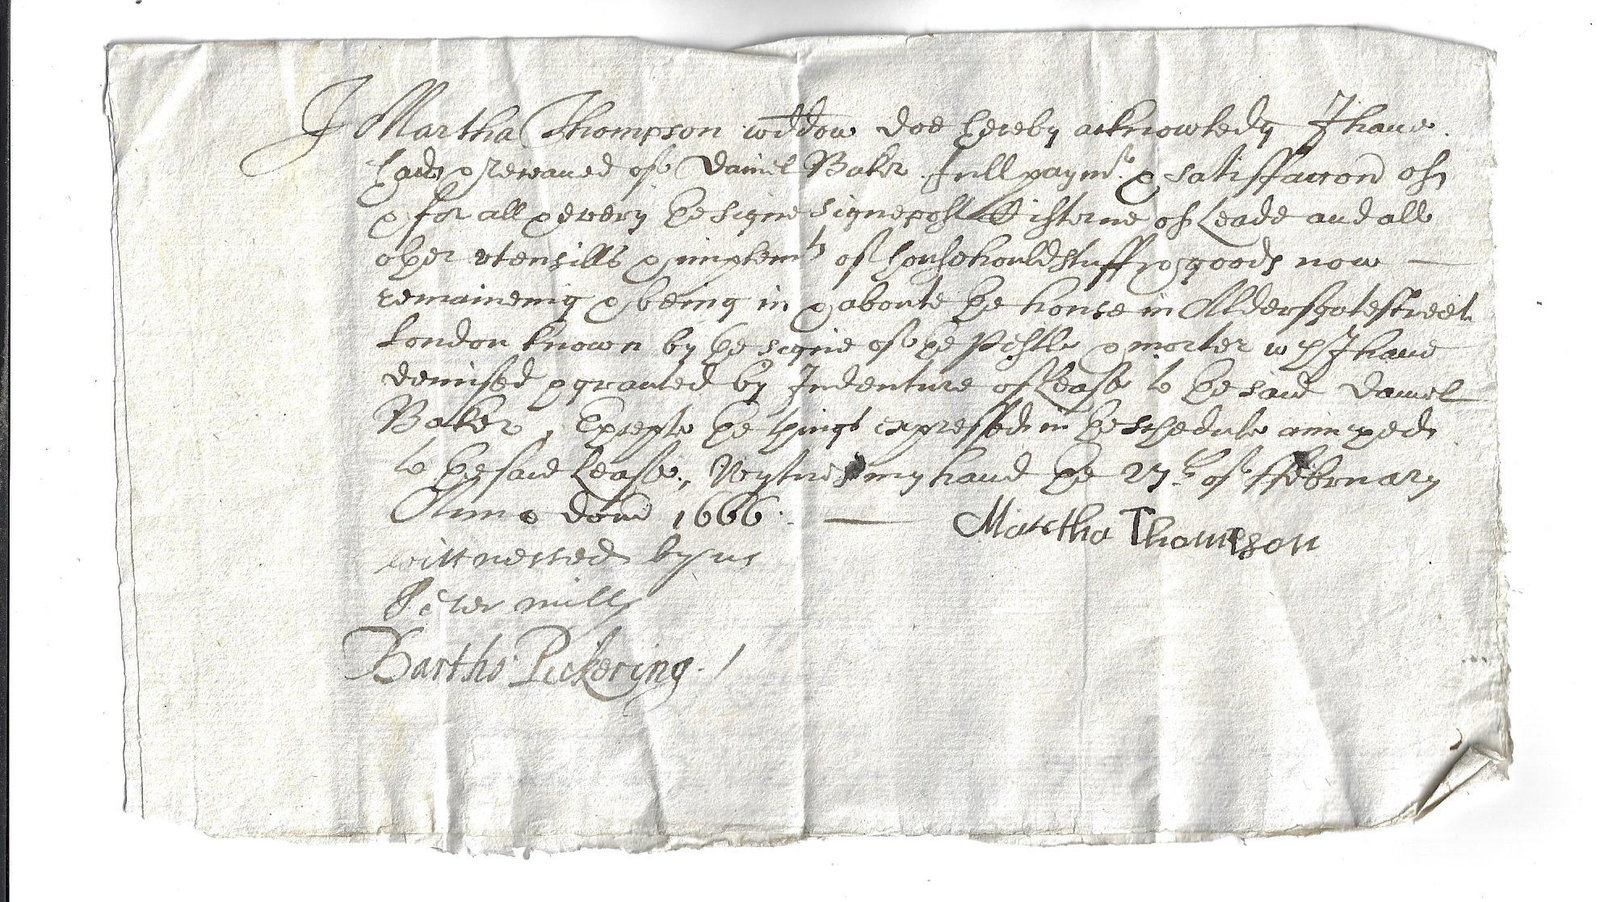 I Martha Thompson widdow doe hereby acknowledg I have
had & receaued of Daniel Baker full paymt & satisfaccon of
& for all & every ye signe signepost Cisterne of Leade and all
other vtensills & implemts of houshouldstuff or goods now —
remaineing & being in & aboute ye house in Aldersgatestreet
London known by ye signe of ye Pestle & morter wch I have
demised & granted by Indenture of Lease to ye said Daniel
Baker, Excepte ye things expressed in ye schedule annexed
to ye said Lease, Wytnes my hand ye 27th of ffebruary
Anno dom 1666. — Martha Thompson
wittnessed by us
Peter mills
Bartho: Pickering